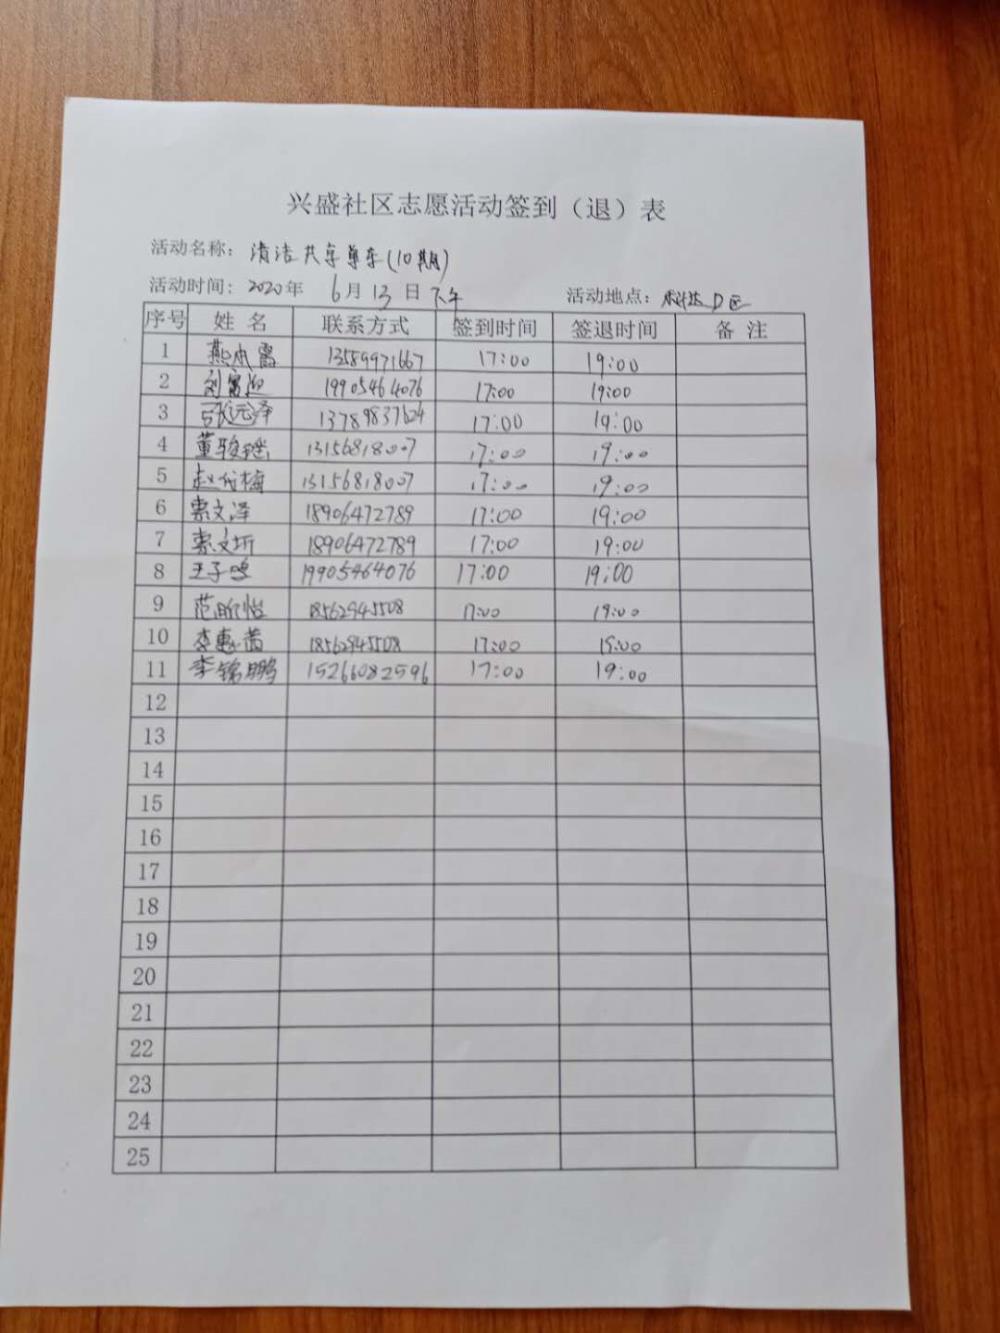 兴盛社区志愿活动签到（退）表
活动名称：清洁共享单车(10期)
活动时间：2020年 6月13日下午 活动地点：科达D区
序号 姓名 联系方式 签到时间 签退时间 备注
1 燕本富 13589971667 17:00 19:00
2 刘富迎 19905464076 17:00 19:00
3 张远泽 13789837624 17:00 19:00
4 董骏瑶 13156818007 17:00 19:00
5 赵代梅 13156818007 17:00 19:00
6 索文泽 18906472789 17:00 19:00
7 索文圻 18906472789 17:00 19:00
8 王子鸣 19905464076 17:00 19:00
9 范昕怡 18562945508 17:00 19:00
10 李惠茜 18562945508 17:00 19:00
11 李锦鹏 15266082596 17:00 19:00
12
13
14
15
16
17
18
19
20
21
22
23
24
25